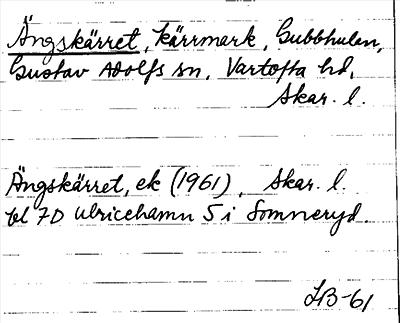 Ängskärret, kärrmark, Gubbhulan,
Gustav Adolfs sn, Vartofta hd,
Skar. l.
Ängskärret, ek (1961), Skar. l.
bl 7D Ulricehamn 5 i Somneryd.
LB-61